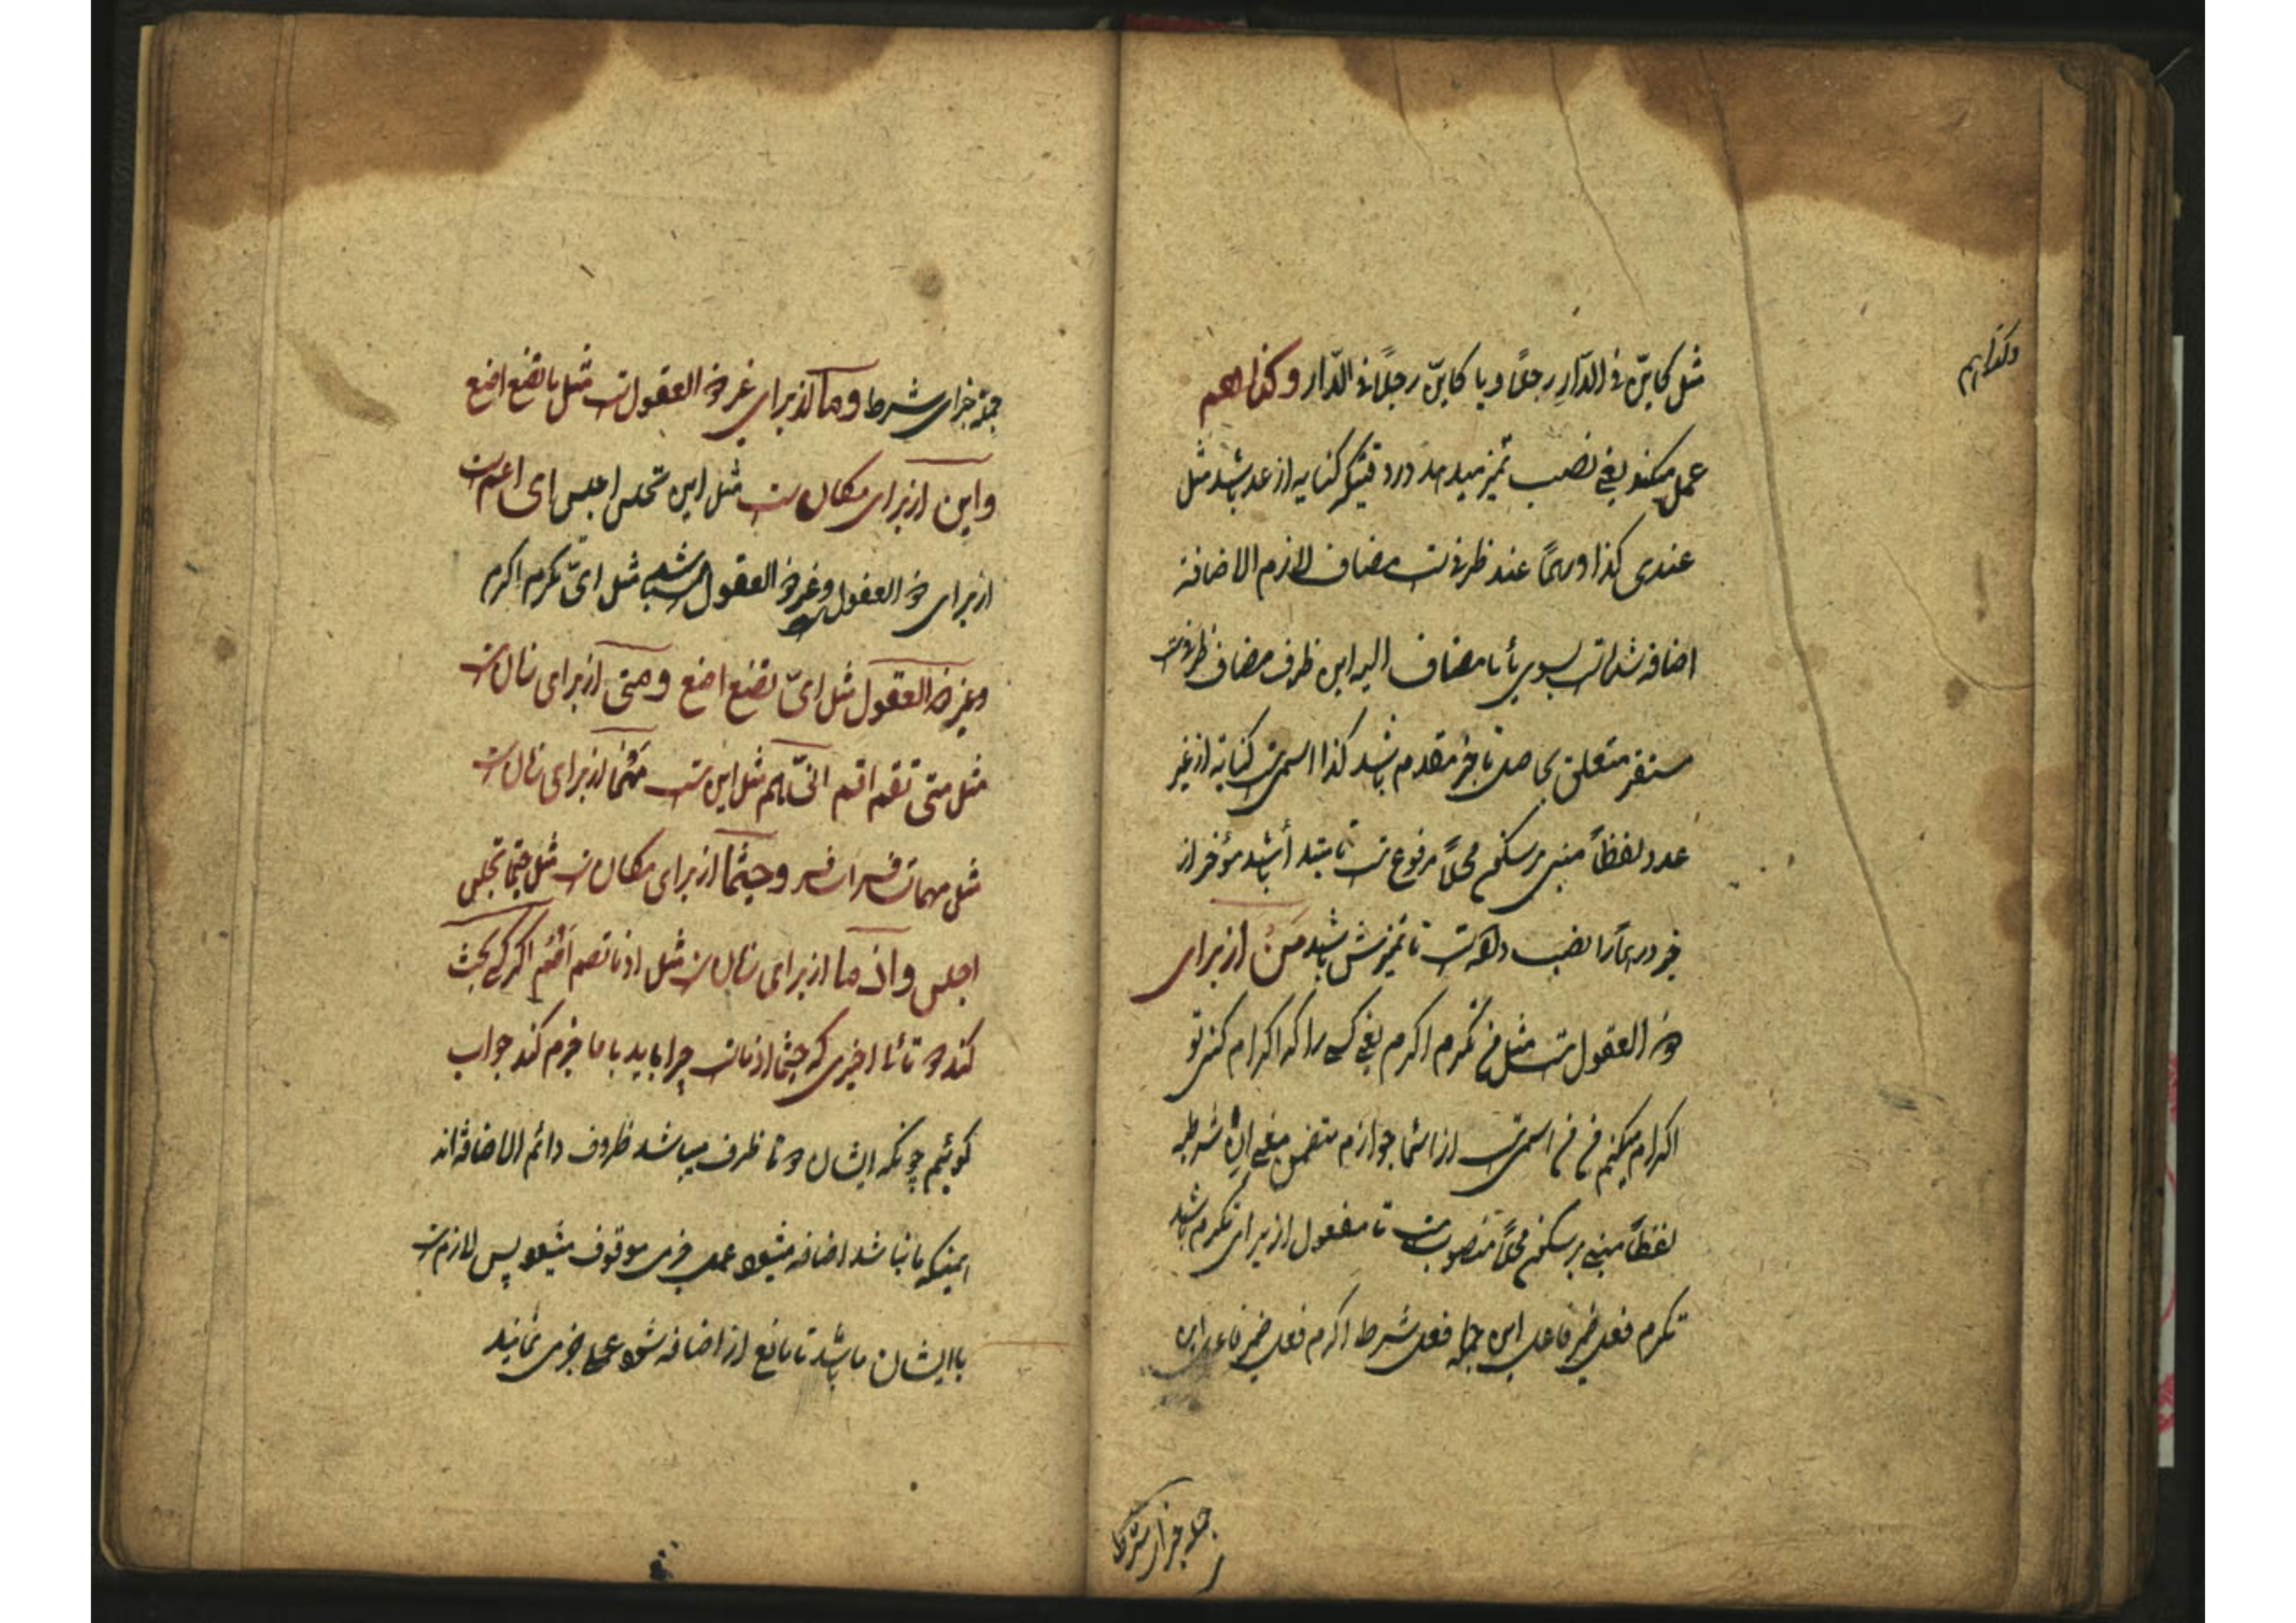 مثل کاین فی الدّار رجلاً و یا کاین رجلاً فی الدّار و کذا هم
عمل میکند یعنی نصب تمیز میدهد در وقتیکه کنایه از عدد باشد مثل
عندی کذا درهماً عند ظرفست مضاف لازم الاضافة
اضافه شده است بسوی یا تا مضاف الیه این ظرف مضاف ظرفست
مستقر متعلق بحاصل تا خبر مقدم باشد کذا اسمیست کنایة از غیر
عدد لفظاً مبنی بر سکون محلاً مرفوعست تا مبتدأ باشد مؤخر از
خبر درهماً را نصب داده است تا تمیزش باشد مَنْ از برای
ذو العقول است مثل من تکرم اکرم یعنی کسی را که اکرام کنی تو
اکرام میکنم من من اسمیست از اسماء جوازم متضمن معنی ان شرطیه
لفظاً مبنی بر سکون محلاً منصوبست تا مفعول از برای تکرم باشد
تکرم فعل ضمیر فاعل این جمله فعل شرط اکرم فعل ضمیر فاعل این
جمله جزای شرط
و کذا هم
جمله جزای شرط و ما از برای غیر ذو العقول است مثل ما تضع اضع
و این از برای مکان است مثل این تجلس اجلس ای اعم است
از برای ذو العقول و غیر ذو العقول باشد مثل ایّ تکرم اکرم
و غیر ذو العقول مثل ایّ تضع اضع و متی از برای زمان است
مثل متی تقم اقم انّی هم مثل این است مهما از برای زمان است
مثل مهما تسافر اسافر و حیثما از برای مکان است مثل حیثما تجلس
اجلس و اذ ما از برای زمان است مثل اذ ما تصم اصم اگر کسی بحث
کند دو تای اخیری که حیثما اذ ما است چرا باید با ما جزم کند جواب
گوئیم چونکه ایشان دو تا ظرف میباشد ظروف دائم الاضافه اند
همینکه ما نباشد اضافه میشود عمل جزمی موقوف میشود پس لازم است
با ایشان ما باشد تا مانع از اضافه شود عمل جزمی نمایند